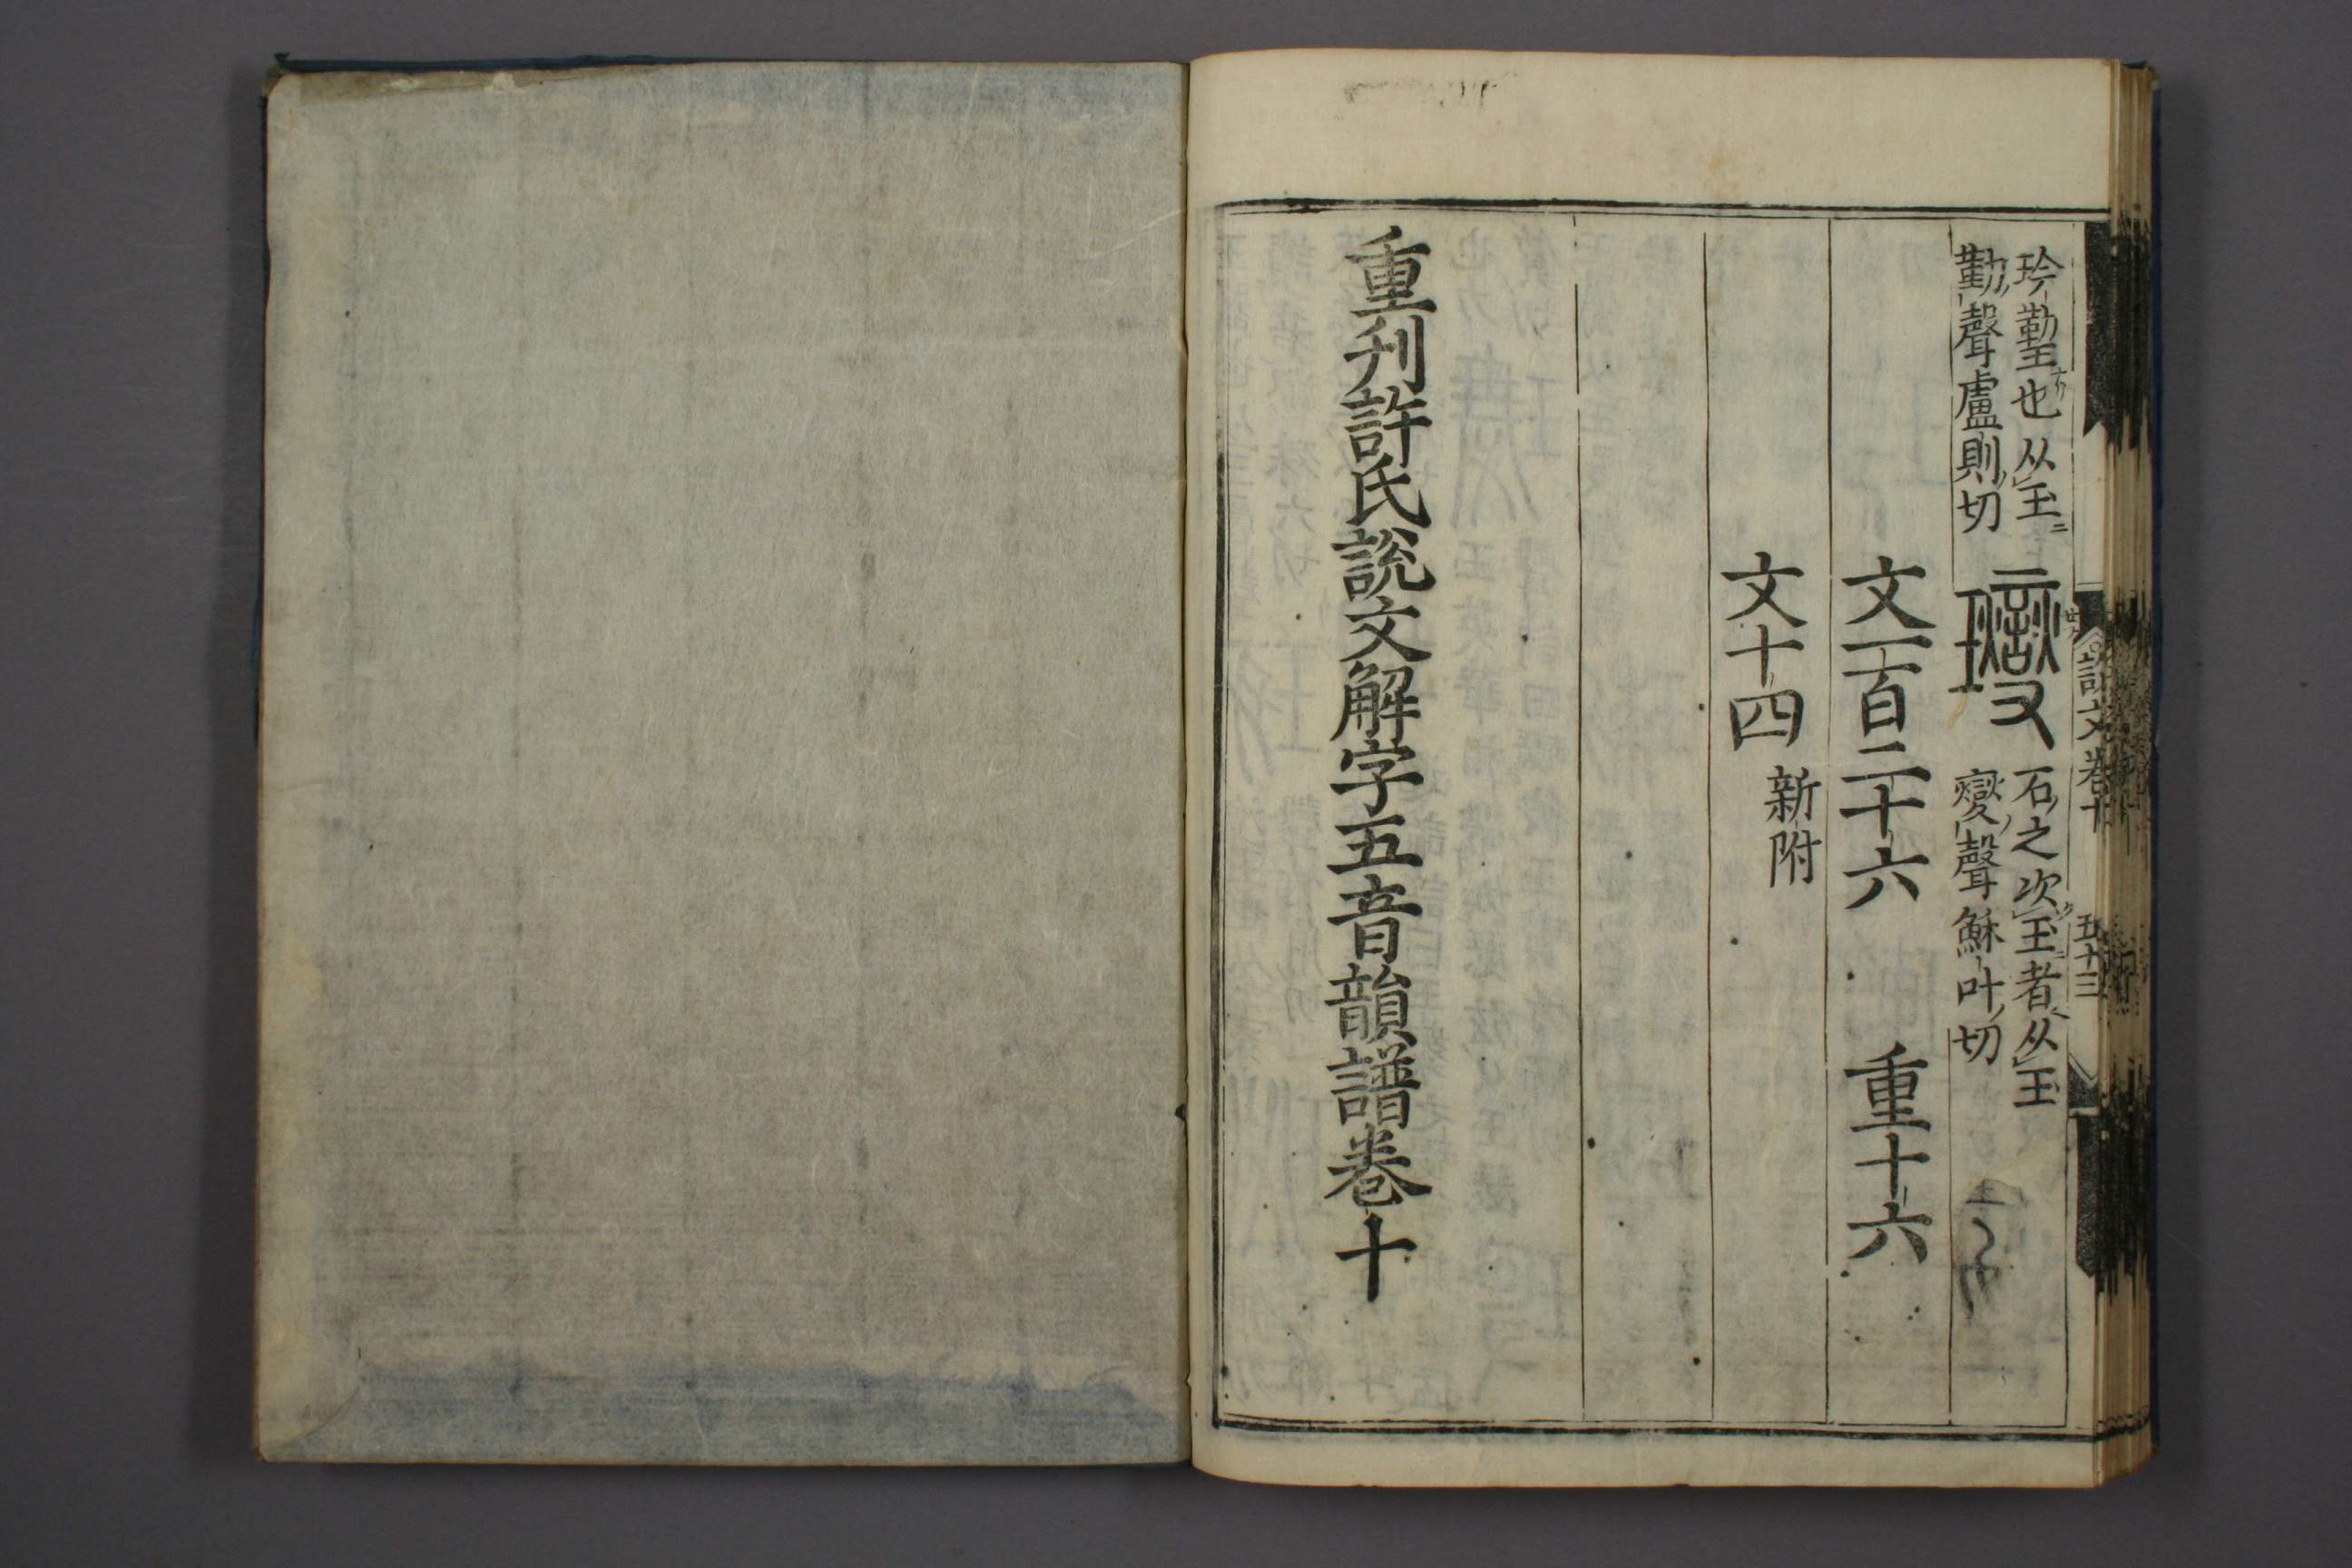 玪䃮也从玉
勒聲盧則切
石之次玉者从玉
燮聲穌叶切
文一百二十六 重十六
文十四 新附
重刋許氏說文解字五音韻譜卷十
說文卷十 五十三